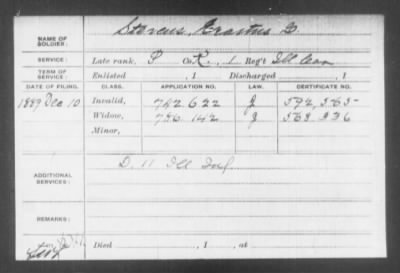 NAME OF SOLDIER: Stevens, Erastus G.
SERVICE: Late rank, P Co. K, 1 Reg't Ill Cav
TERM OF SERVICE: Enlisted , 1 Discharged , 1
DATE OF FILING. CLASS. APPLICATION NO. LAW. CERTIFICATE NO.
1889 Dec 10 Invalid, 742 622 J 592,565
Widow, 786 142 J 563 336
Minor,
ADDITIONAL SERVICES: D. 11 Ill Inf.
REMARKS:
Died , 1 , at